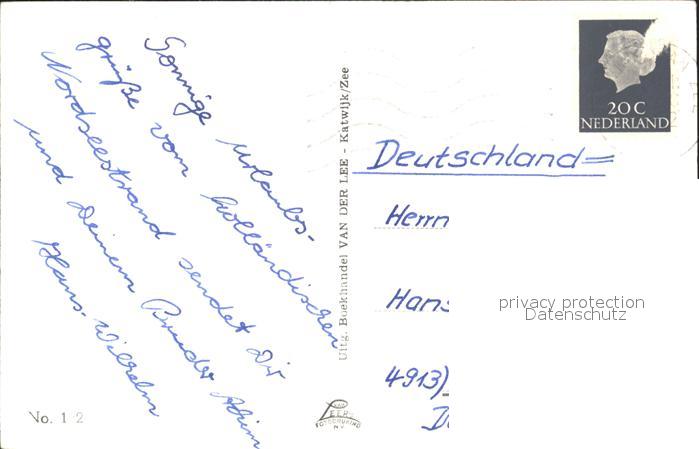 Sonnige Urlaubs-
grüße vom holländischen
Nordseestrand sendet Dir
und Deinem Bruder Achim
Hans-Wilhelm
No. 1 2
Uitg. Boekhandel VAN DER LEE - Katwijk/Zee
20 C
NEDERLAND
Deutschland
Herrn
Hans
privacy protection
Datenschutz
4913)